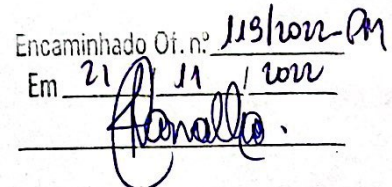 Encaminhado Of. n.º 119/2022-PM
Em 21 / 11 / 2022